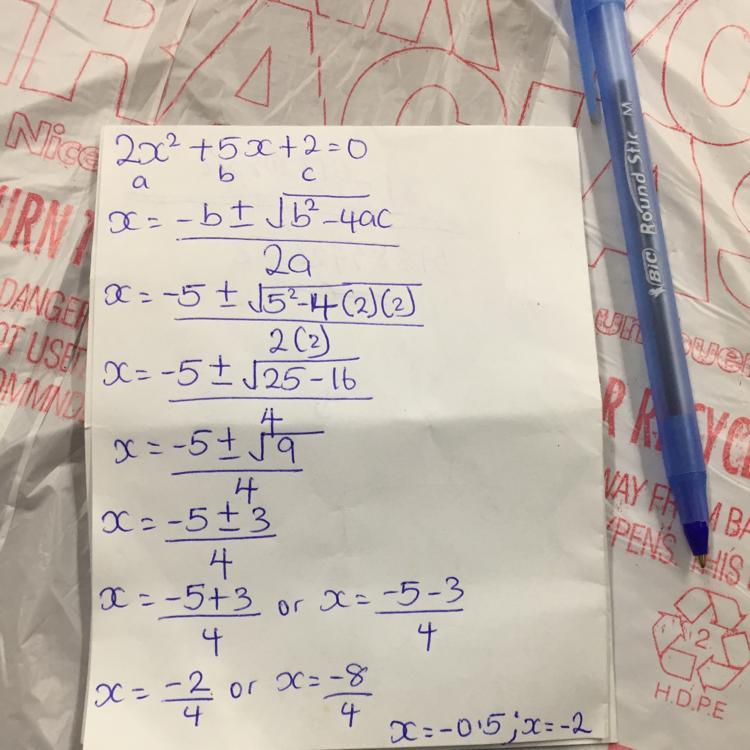 2x² + 5x + 2 = 0
a b c
x = -b ± √b² - 4ac
2a
x = -5 ± √5² - 4(2)(2)
2(2)
x = -5 ± √25 - 16
4
x = -5 ± √9
4
x = -5 ± 3
4
x = -5+3 or x = -5-3
4 4
x = -2 or x = -8
4 4
x = -0.5; x = -2
BiC Round Stic M
Nice
URN
DANGER
OT USE
R RECYC
WAY FR M BA
PENS. THIS
2
H.D.P.E